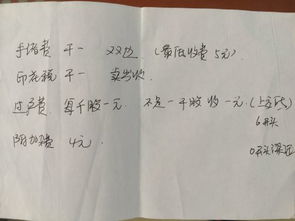 手续费 千一 双边 (最低收费 5元)
印花税 千一 卖出收
过户费 每千股一元 不足一千股收一元 (上交所)
6开头
0开头深证
附加费 4元